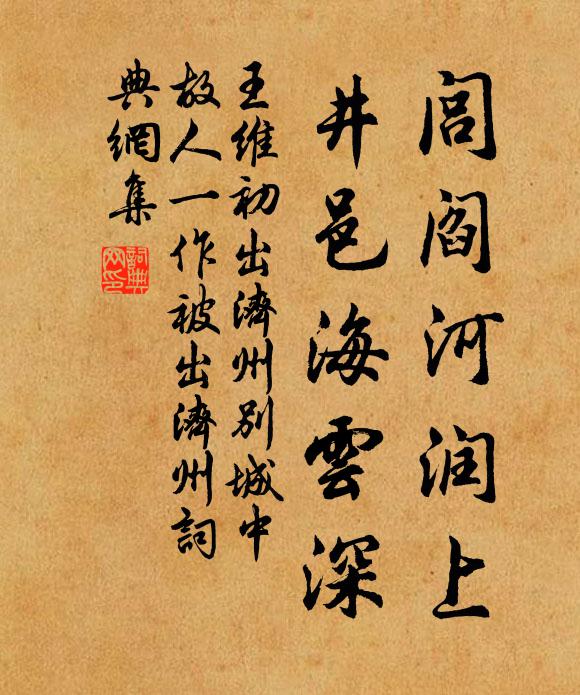 閭閻河潤上
井邑海雲深
王維初出濟州別城中
故人一作被出濟州詞
典網集
詞典
网印